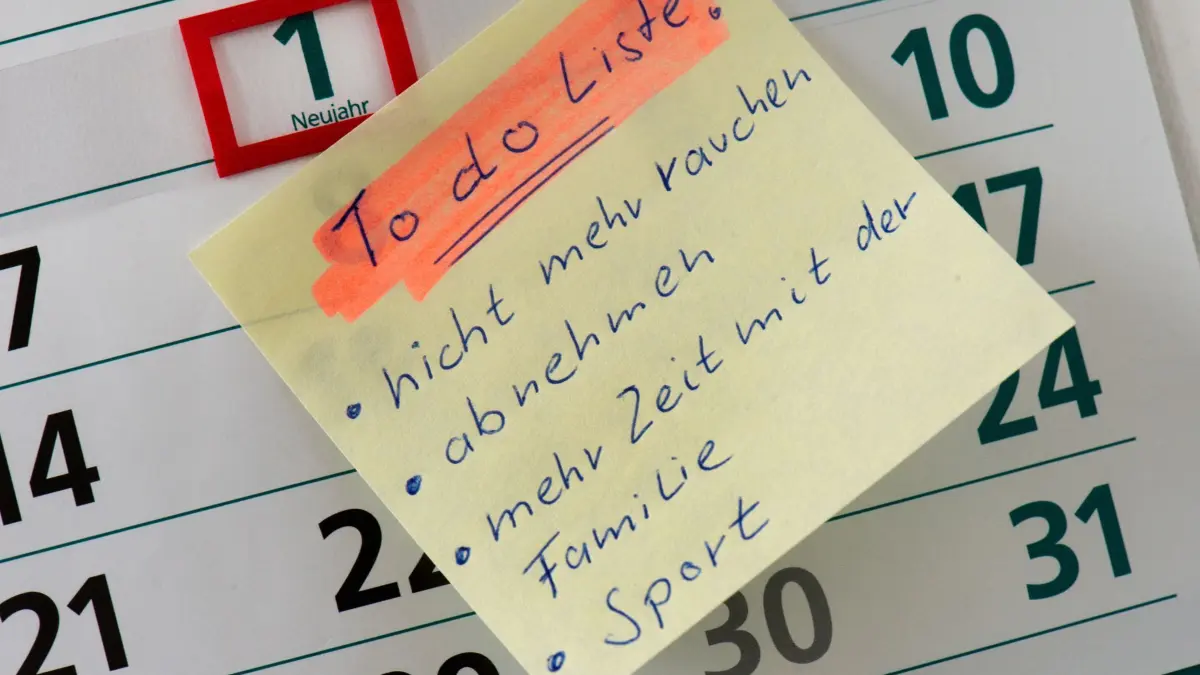 1
Neujahr
10
7
17
14
24
21
22
31
30
To do Liste:
• nicht mehr rauchen
• abnehmen
• mehr Zeit mit der
Familie
• Sport